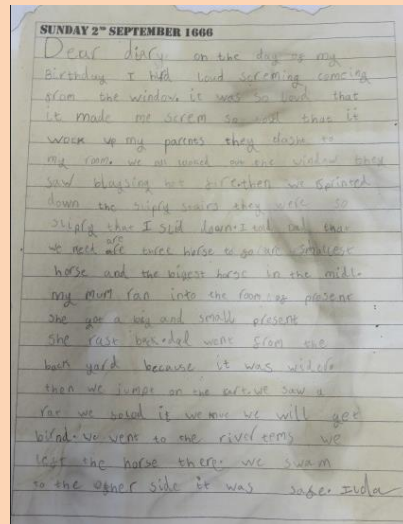 SUNDAY 2ND SEPTEMBER 1666
Dear diary on the day of my
Birthday I herd loud screming comeing
from the window. it was so loud that
it made me screm so loud that it
wock up my parents they dashe to
my room. we all looked out the window they
saw blaysing hot fire. then we sprinted
down the slipry stairs they were so
slipry that I slid down. I told dad that
we need are three horse to go. are smallest
horse and the bigest horse in the midl.
my mum ran into the room of present
she got a big and small present
she rast back. dad went from the
back yard because it was wider.
then we jumpt on the cart. we saw a
rat we if we move we will get
we went to the river tems we
left the horse there. we swam
to the other side it was safe.